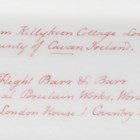 Killykeen Cottage, Lou
County of Cavan Ireland.
Flight Barr & Barr
al Porcelain Works, Worce
London House 1 Coventry